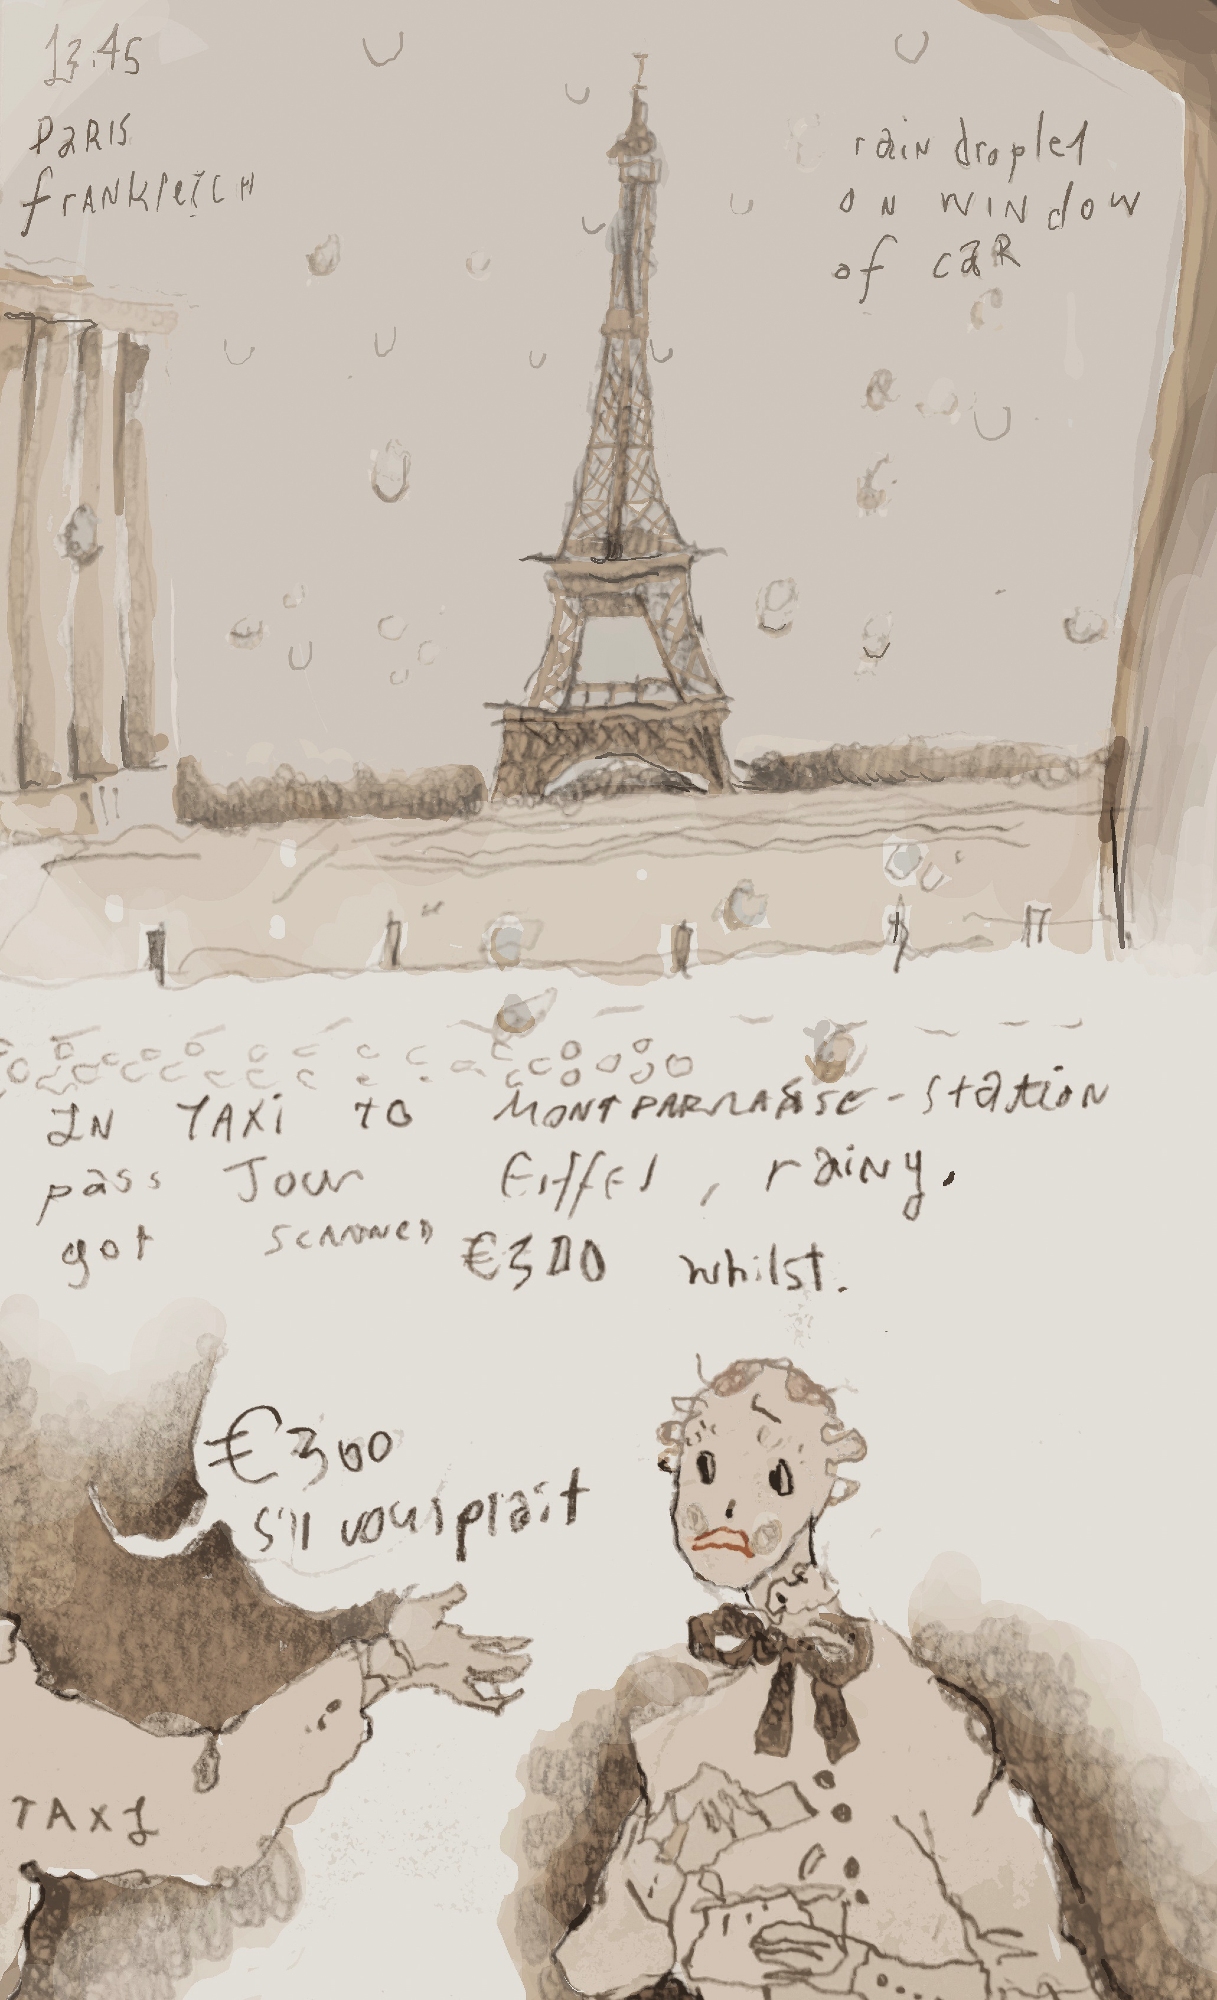 13:45
PARIS
frANKreicH
rain droplet
on window
of caR
IN TAXi to MONTPARNASSE-station
pass Tour Eiffel, rainy.
got scammed €300 whilst.
€300
s'il vous plait
TAXI